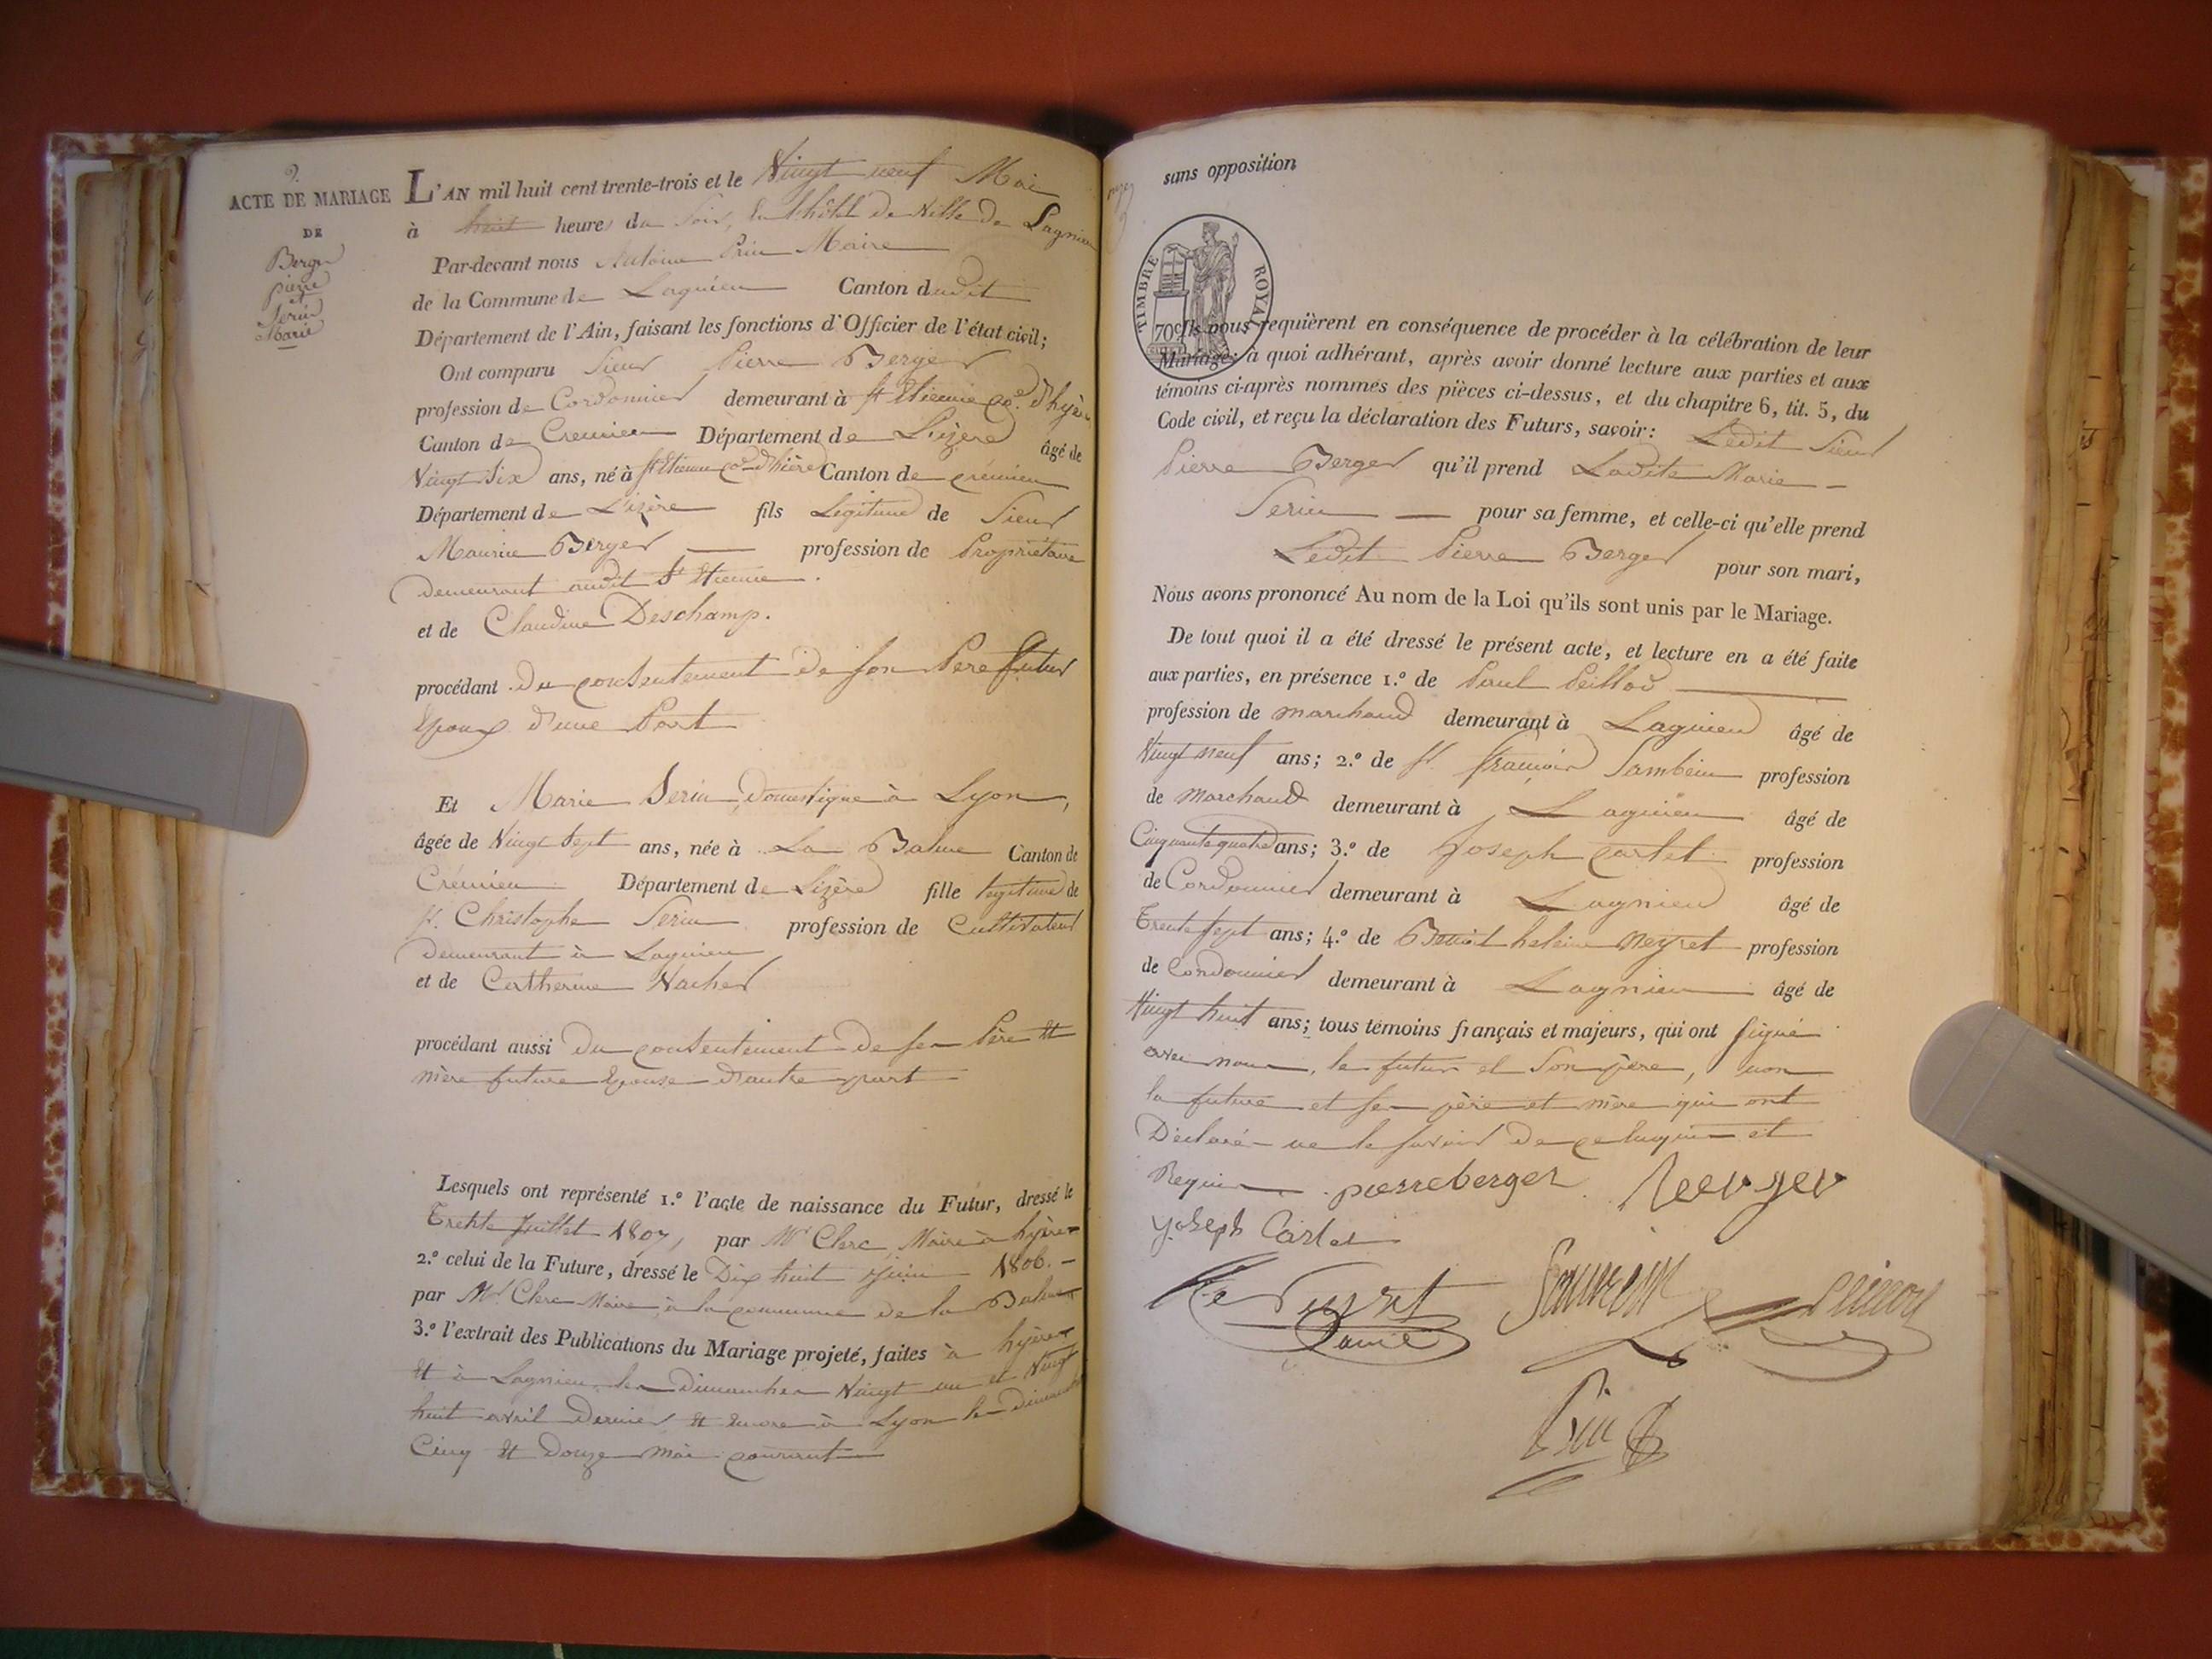 9.
ACTE DE MARIAGE
DE
Berger
pierre
et
Serin
Marie
L'AN mil huit cent trente-trois et le Vingt neuf Mai
à huit heures du Soir, en l'hôtel de Ville de Lagnieu
Par-devant nous Antoine Prin Maire
de la Commune de Lagnieu Canton dudit
Département de l'Ain, faisant les fonctions d'Officier de l'état civil;
Ont comparu Sieur Pierre Berger
profession de Cordonnier demeurant à St Etienne Coe. d'hyère
Canton de Cremieu Département de L'izère âgé de
Vingt Six ans, né à St Etienne Coe d'hière Canton de crémieu
Département de L'izère fils Légitime de Sieur
Maurice Berger profession de Propriétaire
demeurant audit St Etienne.
et de Claudine Deschamp.
procédant du consentement de son Pere futur
Epoux d'une Part
Et Marie Serin, Domestique à Lyon,
âgée de Vingt Sept ans, née à La Balme Canton de
Crémieu Département de Lizère fille legitime de
Sr. Christophe Serin profession de Cultivateur
demeurant à Lagnieu
et de Catherine Vacher
procédant aussi du consentement de ses Père et
mère future Epouse d'autre part
Lesquels ont représenté 1.º l'acte de naissance du Futur, dressé le
Trente Juillet 1807, par Mr Clerc Maire à hyère
2.º celui de la Future, dressé le Dix huit Juin 1806.
par Mr. Clerc Maire à la commune de la Balme
3.º l'extrait des Publications du Mariage projeté, faites à hyère
et à Lagnieu les Dimanches Vingt un et Vingt
huit avril Dernier et encore à Lyon les Dimanches
Cinq et Douze mai courant
sans opposition
TIMBRE ROYAL
70c
Ils nous requièrent en conséquence de procéder à la célébration de leur
Mariage; à quoi adhérant, après avoir donné lecture aux parties et aux
témoins ci-après nommés des pièces ci-dessus, et du chapitre 6, tit. 5, du
Code civil, et reçu la déclaration des Futurs, savoir: Ledit Sieur
Pierre Berger qu'il prend Ladite Marie
Serin pour sa femme, et celle-ci qu'elle prend
Ledit Pierre Berger pour son mari,
Nous avons prononcé Au nom de la Loi qu'ils sont unis par le Mariage.
De tout quoi il a été dressé le présent acte, et lecture en a été faite
aux parties, en présence 1.º de Paul Peillod
profession de marchand demeurant à Lagnieu âgé de
Vingt neuf ans; 2.º de Sr. françois Sambein profession
de Marchand demeurant à Lagnieu âgé de
Cinquante quatre ans; 3.º de Joseph Carlet profession
de Cordonnier demeurant à Lagnieu âgé de
Trente sept ans; 4.º de Benoit helein Neyret profession
de Cordonnier demeurant à Lagnieu âgé de
Vingt huit ans; tous témoins français et majeurs, qui ont signé
avec nous, le futur et Son père, non
la future et ses père et mère qui ont
Déclaré ne le savoir de ce enquis et
Requis. pierreberger
Joseph Carlet
Prin